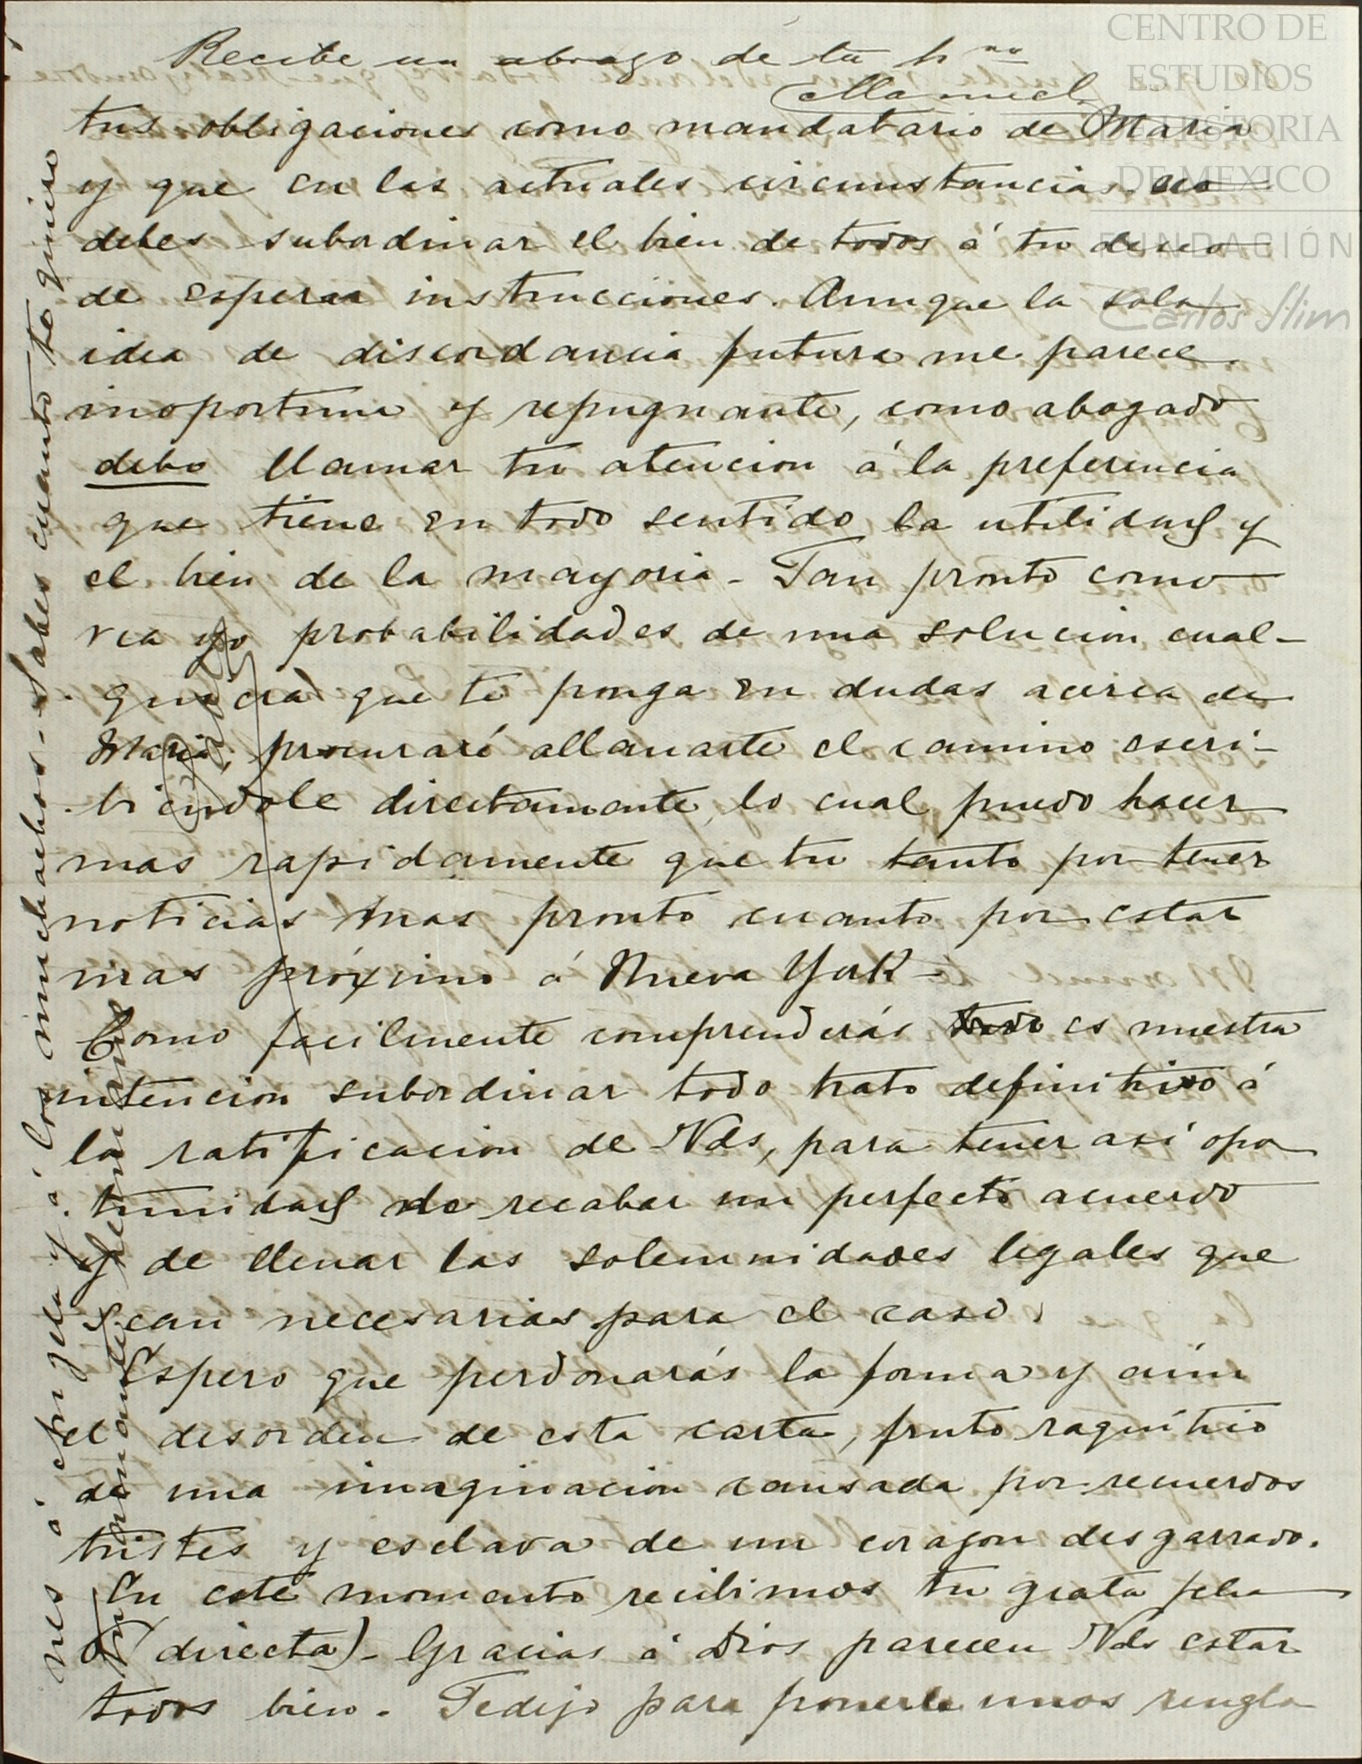 Recibe un abrazo de tu hno
Manuel
tus obligaciones como mandatario de Maria
y que en las actuales circunstancias no
debes subordinar el bien de todos á tu deseo
de esperar instrucciones. Aunque la sola
idea de discordancia futura me parece
inoportuna y repugnante, como abogado
debo llamar tu atencion á la preferencia
que tiene en todo sentido la utilidad y
el bien de la mayoria - Tan pronto como
vea yo probabilidades de una solucion cual-
quiera que te ponga en dudas acerca de
Maria, procuraré allanarte el camino escri-
biendole directamente, lo cual puedo hacer
mas rapidamente que tu tanto por tener
noticias mas pronto cuanto por estar
mas próximo á Nueva York -
Como facilmente comprenderás es nuestra
intencion subordinar todo trato definitivo á
la ratificacion de Vds, para tener asi opor
tunidad de recabar un perfecto acuerdo
y de llenar las solemnidades legales que
sean necesarias para el caso.
Espero que perdonarás la forma y aún
el desorden de esta carta, fruto raquitico
de una imaginacion cansada por recuerdos
tristes y esclava de un corazon desgarrado.
En este momento recibimos tu grata fcha
(directa) - Gracias á Dios parecen Vds estar
todos bien. Te dejo para ponerle unos renglo
nes á Chijela y á los muchachos - Sabes cuanto te quiero
CENTRO DE
ESTUDIOS
DE HISTORIA
DE MEXICO
FUNDACIÓN
Carlos Slim